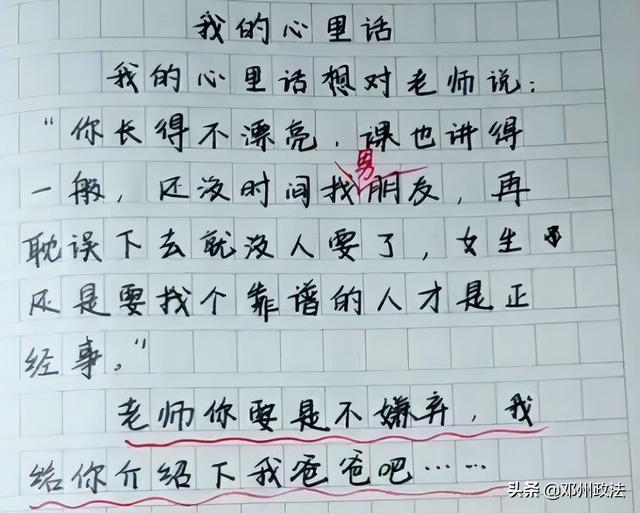 我的心里话
我的心里话想对老师说:
“你长得不漂亮,课也讲得
男
一般,还没时间找朋友,再
耽误下去就没人要了,女生
还是要找个靠谱的人才是正
经事。”
老师你要是不嫌弃,我
给你介绍下我爸爸吧……
头条 @邓州政法